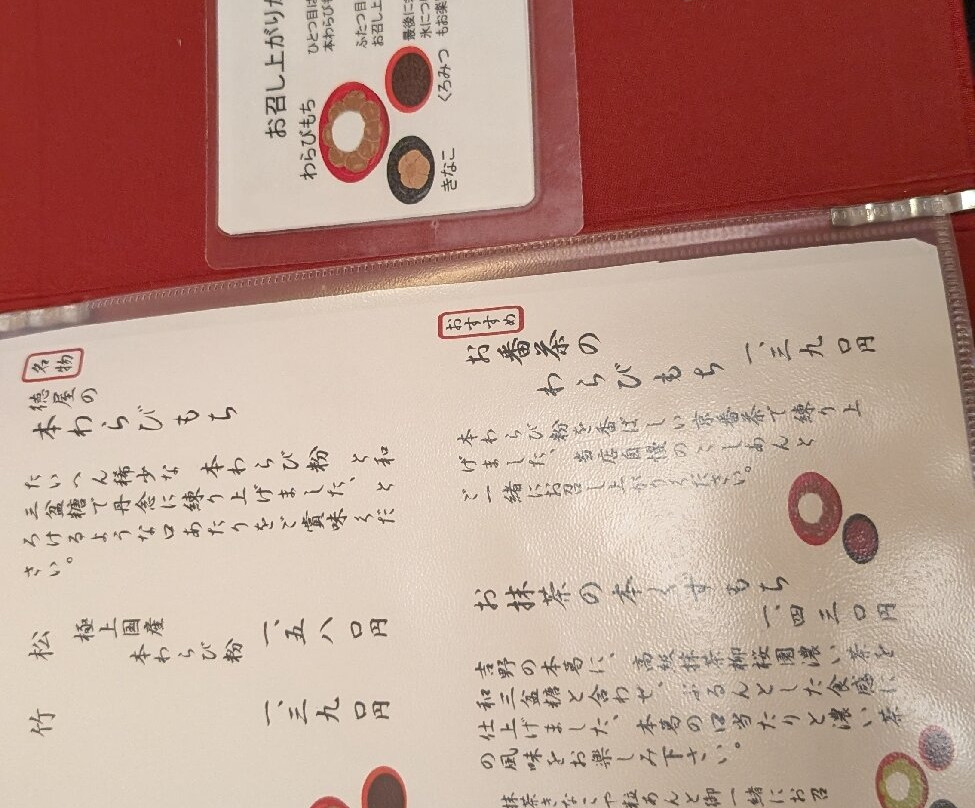 お召し上がり
わらびもち
きなこ
くろみつ
ひとつ目は
本わらび
ふたつ目
お召し上
最後に
氷につ
もお楽
名物
徳屋の
本わらびもち
たいへん稀少な本わらび粉と和
三盆糖で丹念に練り上げました、と
ろけるような口あたりをご賞味くだ
さい。
松
極上国産
本わらび粉
一、五八〇円
竹
一、三九〇円
おすすめ
お番茶の
わらびもち
一、三九〇円
本わらび粉を香ばしい京番茶で練り上
げました、当店自慢のこしあんと
ご一緒にお召し上がりください。
お抹茶の本くずもち
一、四三〇円
吉野の本葛に、高級抹茶柳桜園濃い茶を
和三盆糖と合わせ、ぷるんとした食感に
仕上げました、本葛の口当たりと濃い茶
の風味をお楽しみ下さい。
抹茶きなこや粒あんと御一緒にお召